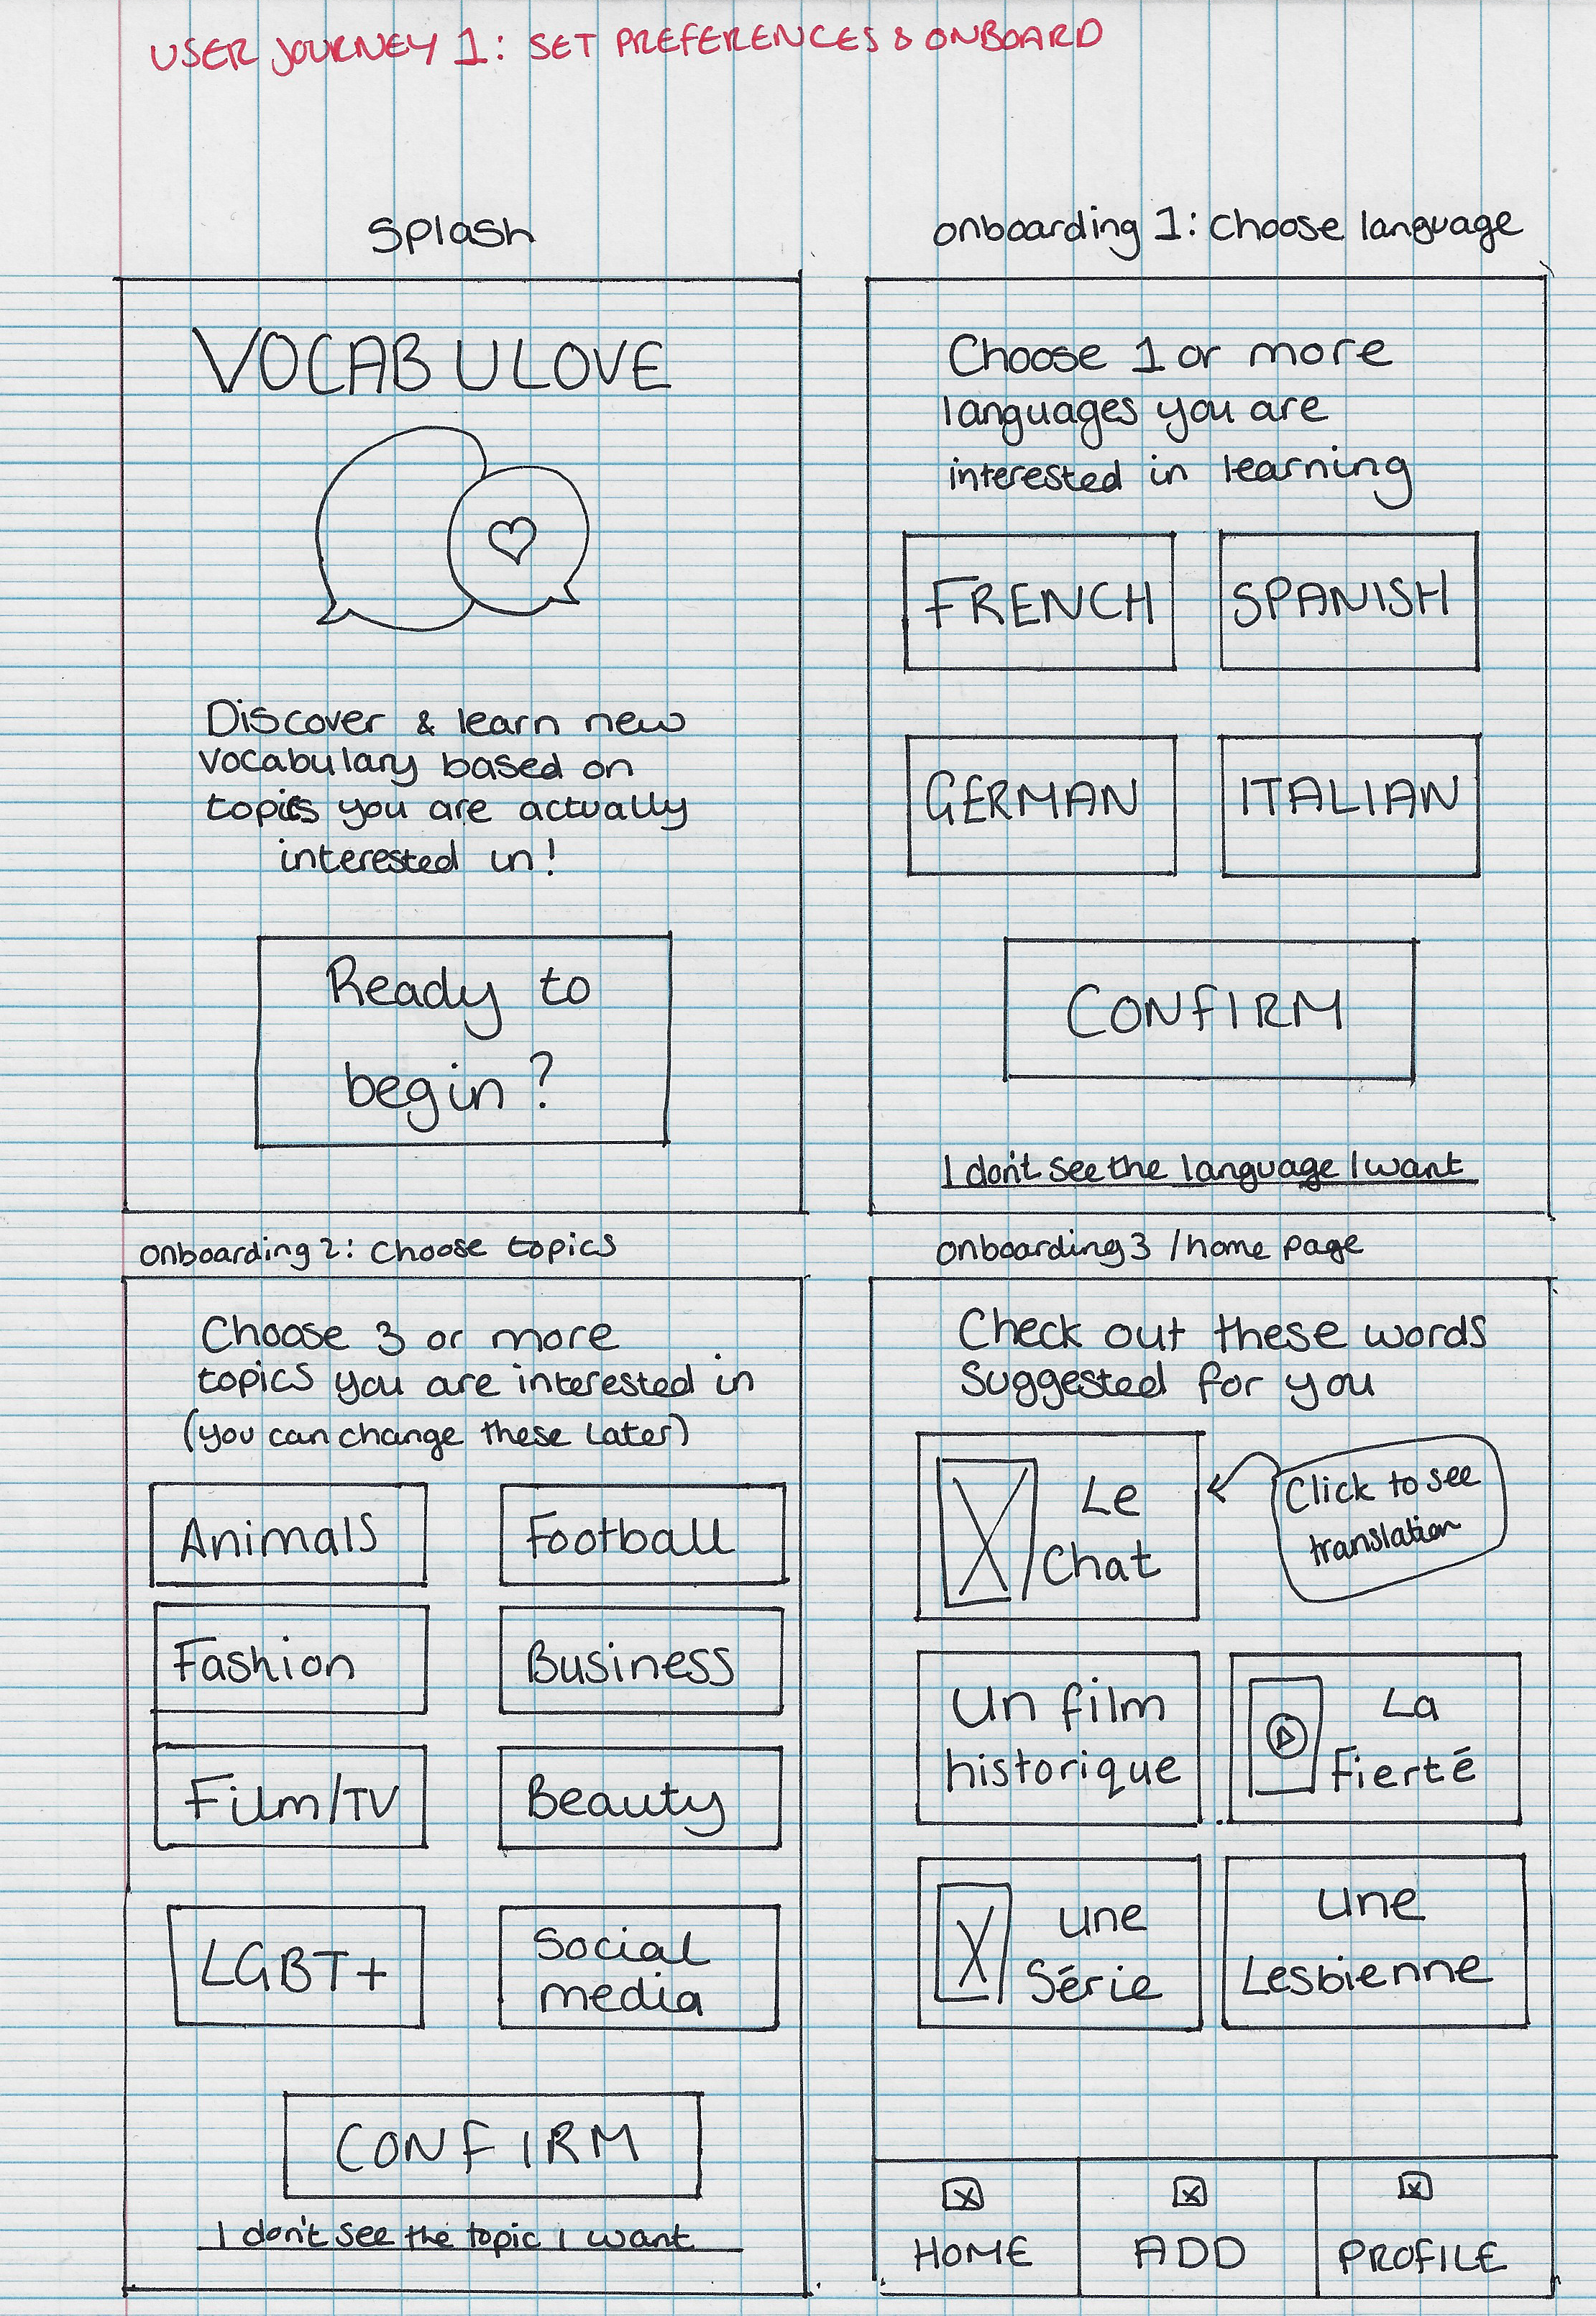 USER JOURNEY 1: SET PREFERENCES & ONBOARD
Splash
VOCABULOVE
Discover & learn new
vocabulary based on
topics you are actually
interested in!
Ready to
begin?
onboarding 1: Choose language
Choose 1 or more
languages you are
interested in learning
FRENCH
SPANISH
GERMAN
ITALIAN
CONFIRM
I don't see the language I want
onboarding 2: Choose topics
Choose 3 or more
topics you are interested in
(you can change these later)
Animals
Football
Fashion
Business
Film/TV
Beauty
LGBT+
Social
media
CONFIRM
I don't see the topic I want
onboarding 3 / home page
Check out these words
suggested for you
Le
Chat
Click to see
translation
Un film
historique
La
Fierté
Une
Série
Une
Lesbienne
HOME
ADD
PROFILE